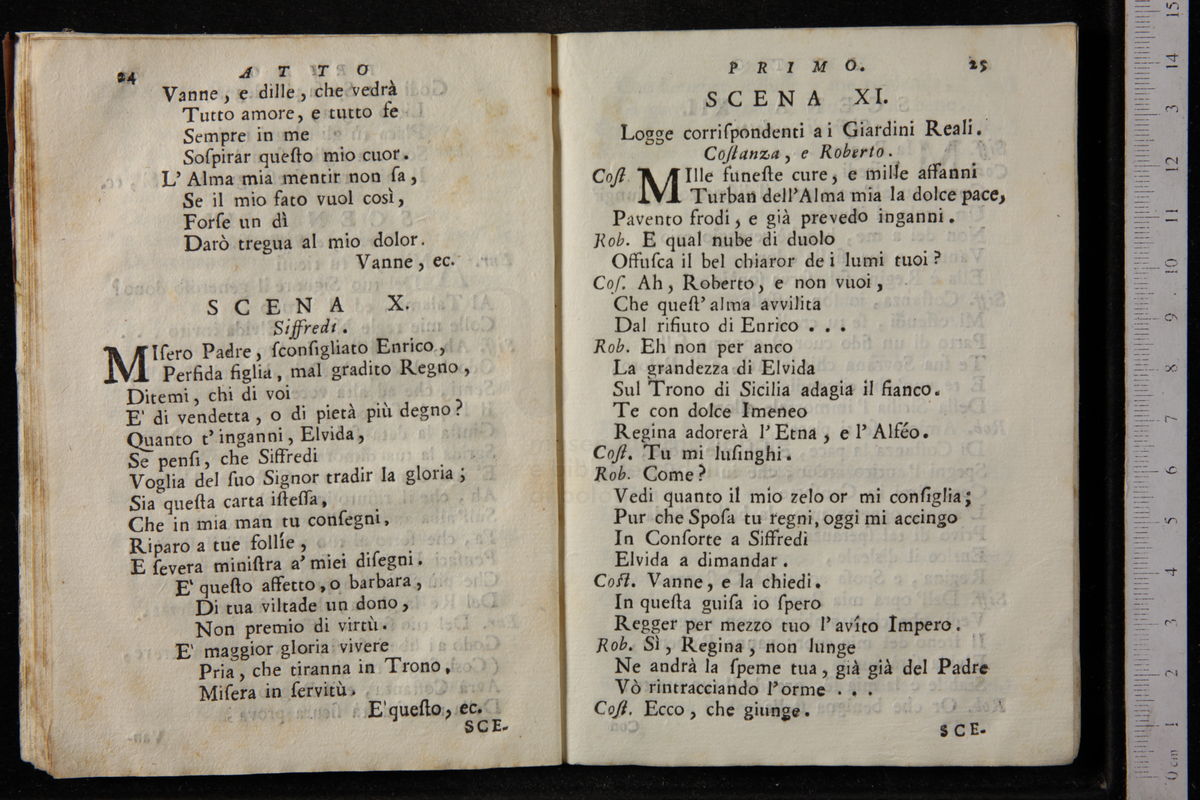 24
A T T O
Vanne, e dille, che vedrà
Tutto amore, e tutto fe
Sempre in me
Soſpirar queſto mio cuor.
L'Alma mia mentir non ſa,
Se il mio fato vuol così,
Forſe un dì
Darò tregua al mio dolor.
Vanne, ec.
S C E N A X.
Siffredi.
MIſero Padre, ſconſigliato Enrico,
Perfida figlia, mal gradito Regno,
Ditemi, chi di voi
E' di vendetta, o di pietà più degno?
Quanto t'inganni, Elvida,
Se penſi, che Siffredi
Voglia del ſuo Signor tradir la gloria;
Sia queſta carta iſteſſa,
Che in mia man tu conſegni,
Riparo a tue follíe,
E ſevera miniſtra a' miei diſegni.
E' queſto affetto, o barbara,
Di tua viltade un dono,
Non premio di virtù.
E' maggior gloria vivere
Pria, che tiranna in Trono,
Miſera in ſervitù.
E' queſto, ec.
SCE-
P R I M O.
25
SCENA XI.
Logge corriſpondenti ai Giardini Reali.
Coſtanza, e Roberto.
Coſt. MIlle funeſte cure, e mille affanni
Turban dell'Alma mia la dolce pace,
Pavento frodi, e già prevedo inganni.
Rob. E qual nube di duolo
Offuſca il bel chiaror dei lumi tuoi?
Coſ. Ah, Roberto, e non vuoi,
Che queſt'alma avvilita
Dal rifiuto di Enrico . . .
Rob. Eh non per anco
La grandezza di Elvida
Sul Trono di Sicilia adagia il fianco.
Te con dolce Imeneo
Regina adorerà l'Etna, e l'Alféo.
Coſt. Tu mi luſinghi.
Rob. Come?
Vedi quanto il mio zelo or mi conſiglia;
Pur che Spoſa tu regni, oggi mi accingo
In Conſorte a Siffredi
Elvida a dimandar.
Coſt. Vanne, e la chiedi.
In queſta guiſa io ſpero
Regger per mezzo tuo l'avíto Impero.
Rob. Sì, Regina, non lunge
Ne andrà la ſpeme tua, già già del Padre
Vò rintracciando l'orme . . .
Coſt. Ecco, che giunge.
SCE-
0 cm 1 2 3 4 5 6 7 8 9 10 11 12 13 14 15